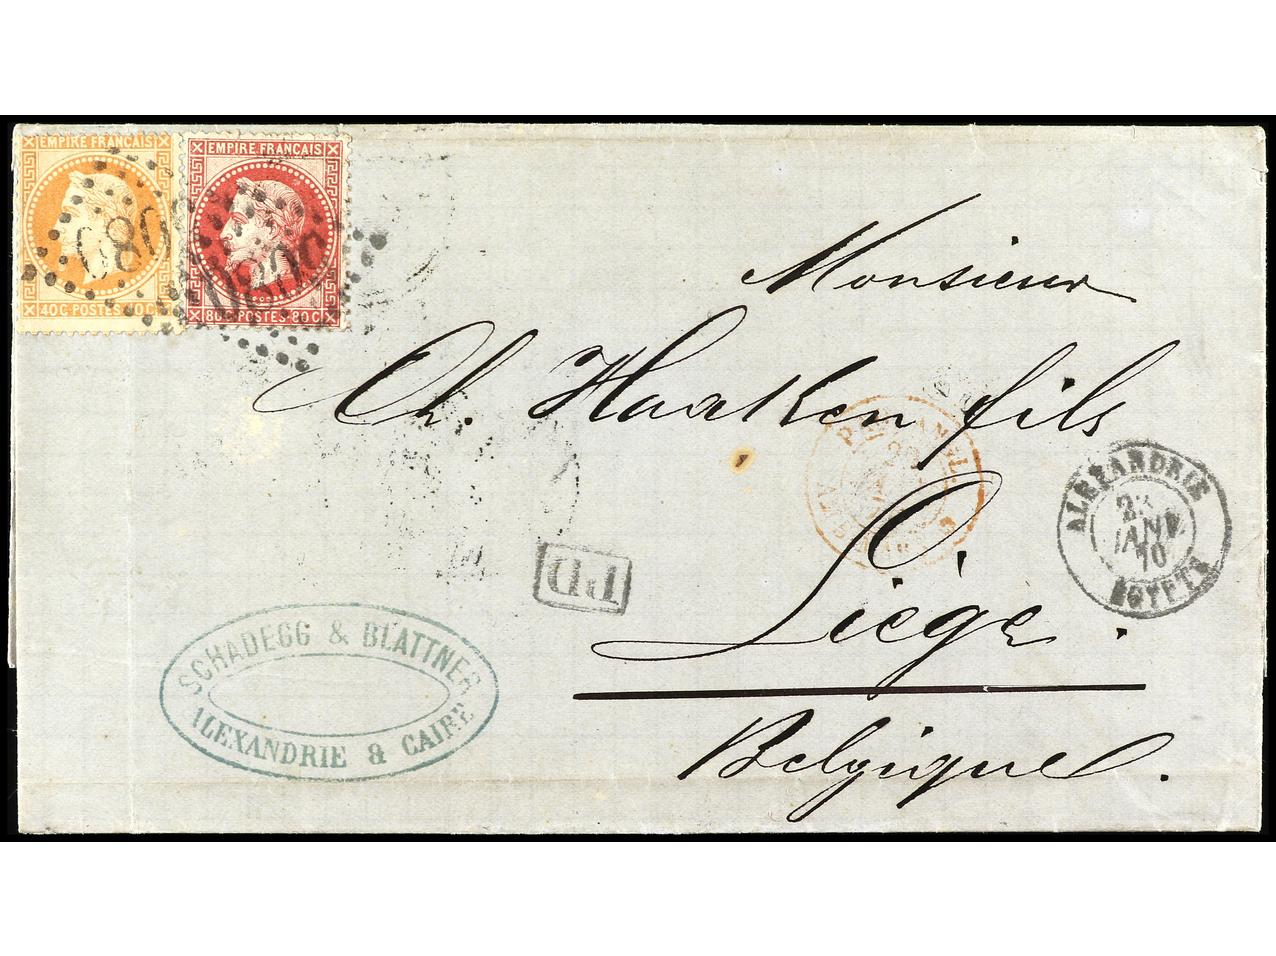 EMPIRE FRANÇAIS
40C POSTES 40C
EMPIRE FRANÇAIS
80C POSTES 80C
Monsieur
Ch. Haaken fils
Liège.
Belgique.
PD
ALEXANDRIE
JANV.
70
EGYPTE
SCHADEGG & BLATTNER
ALEXANDRIE & CAIRE